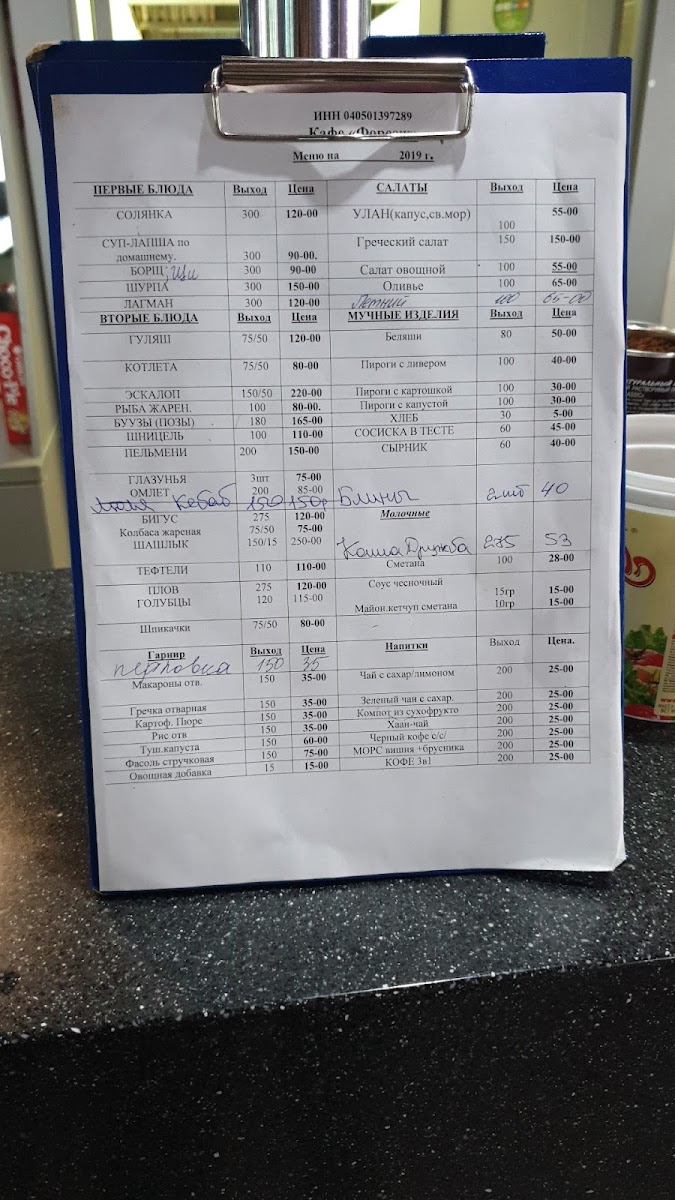 ИНН 040501397289
Кафе «Форсаж»
Меню на 2019 г.
ПЕРВЫЕ БЛЮДА Выход Цена
СОЛЯНКА 300 120-00
СУП-ЛАПША по домашнему. 300 90-00.
БОРЩ, Щи 300 90-00
ШУРПА 300 150-00
ЛАГМАН 300 120-00
ВТОРЫЕ БЛЮДА Выход Цена
ГУЛЯШ 75/50 120-00
КОТЛЕТА 75/50 80-00
ЭСКАЛОП 150/50 220-00
РЫБА ЖАРЕН. 100 80-00.
БУУЗЫ (ПОЗЫ) 180 165-00
ШНИЦЕЛЬ 100 110-00
ПЕЛЬМЕНИ 200 150-00
ГЛАЗУНЬЯ 3шт 75-00
ОМЛЕТ 200 85-00
люля кебаб 150 150р
БИГУС 275 120-00
Колбаса жареная 75/50 75-00
ШАШЛЫК 150/15 250-00
ТЕФТЕЛИ 110 110-00
ПЛОВ 275 120-00
ГОЛУБЦЫ 120 115-00
Шпикачки 75/50 80-00
Гарнир Выход Цена
перловка 150 35
Макароны отв. 150 35-00
Гречка отварная 150 35-00
Картоф. Пюре 150 35-00
Рис отв 150 35-00
Туш.капуста 150 60-00
Фасоль стручковая 150 75-00
Овощная добавка 15 15-00
САЛАТЫ Выход Цена
УЛАН(капус,св.мор) 100 55-00
Греческий салат 150 150-00
Салат овощной 100 55-00
Оливье 100 65-00
Летний 100 65-00
МУЧНЫЕ ИЗДЕЛИЯ Выход Цена
Беляши 80 50-00
Пироги с ливером 100 40-00
Пироги с картошкой 100 30-00
Пироги с капустой 100 30-00
ХЛЕБ 30 5-00
СОСИСКА В ТЕСТЕ 60 45-00
СЫРНИК 60 40-00
Блины 2шт 40
Молочные
Каша Дружба 275 53
Сметана 100 28-00
Соус чесночный 15гр 15-00
Майон.кетчуп сметана 10гр 15-00
Напитки Выход Цена.
Чай с сахар/лимоном 200 25-00
Зеленый чай с сахар. 200 25-00
Компот из сухофрукто 200 25-00
Хаан-чай 200 25-00
Черный кофе с/с/ 200 25-00
МОРС вишня +брусника 200 25-00
КОФЕ 3в1 200 25-00
Choco Pie